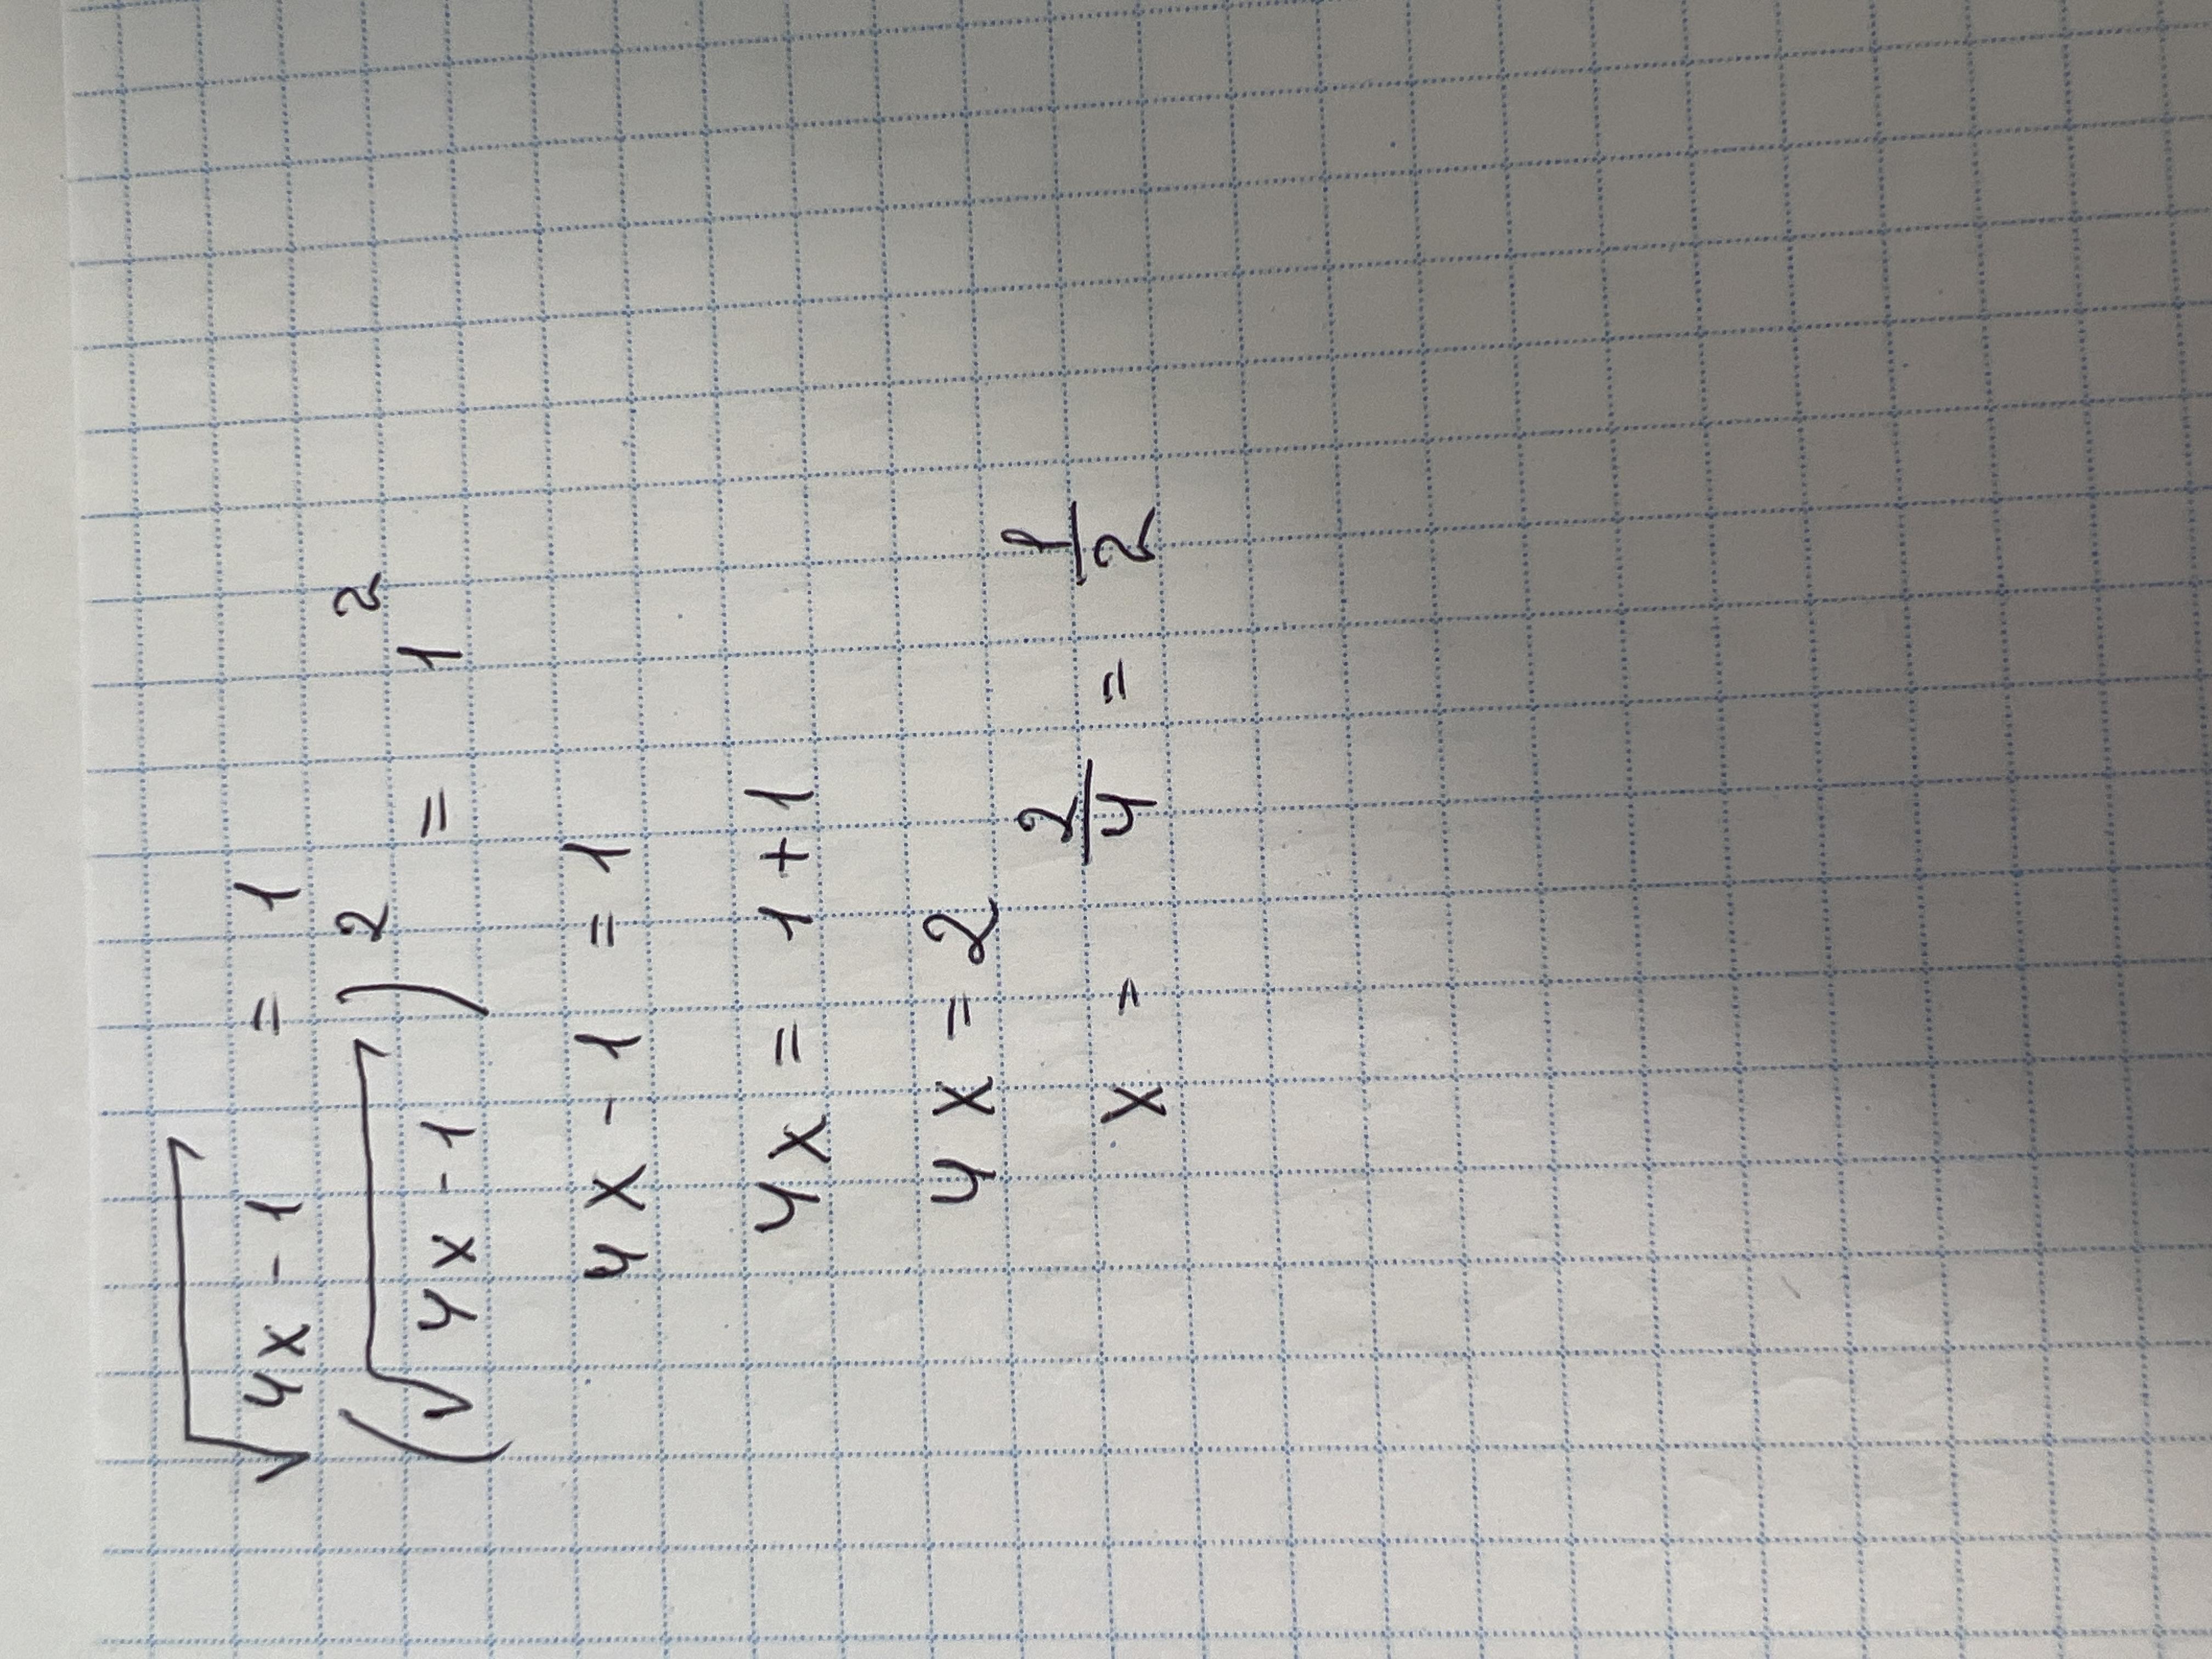 √4x - 1 = 1
(√4x - 1)² = 1²
4x - 1 = 1
4x = 1 + 1
4x = 2
x = 2/4 = 1/2